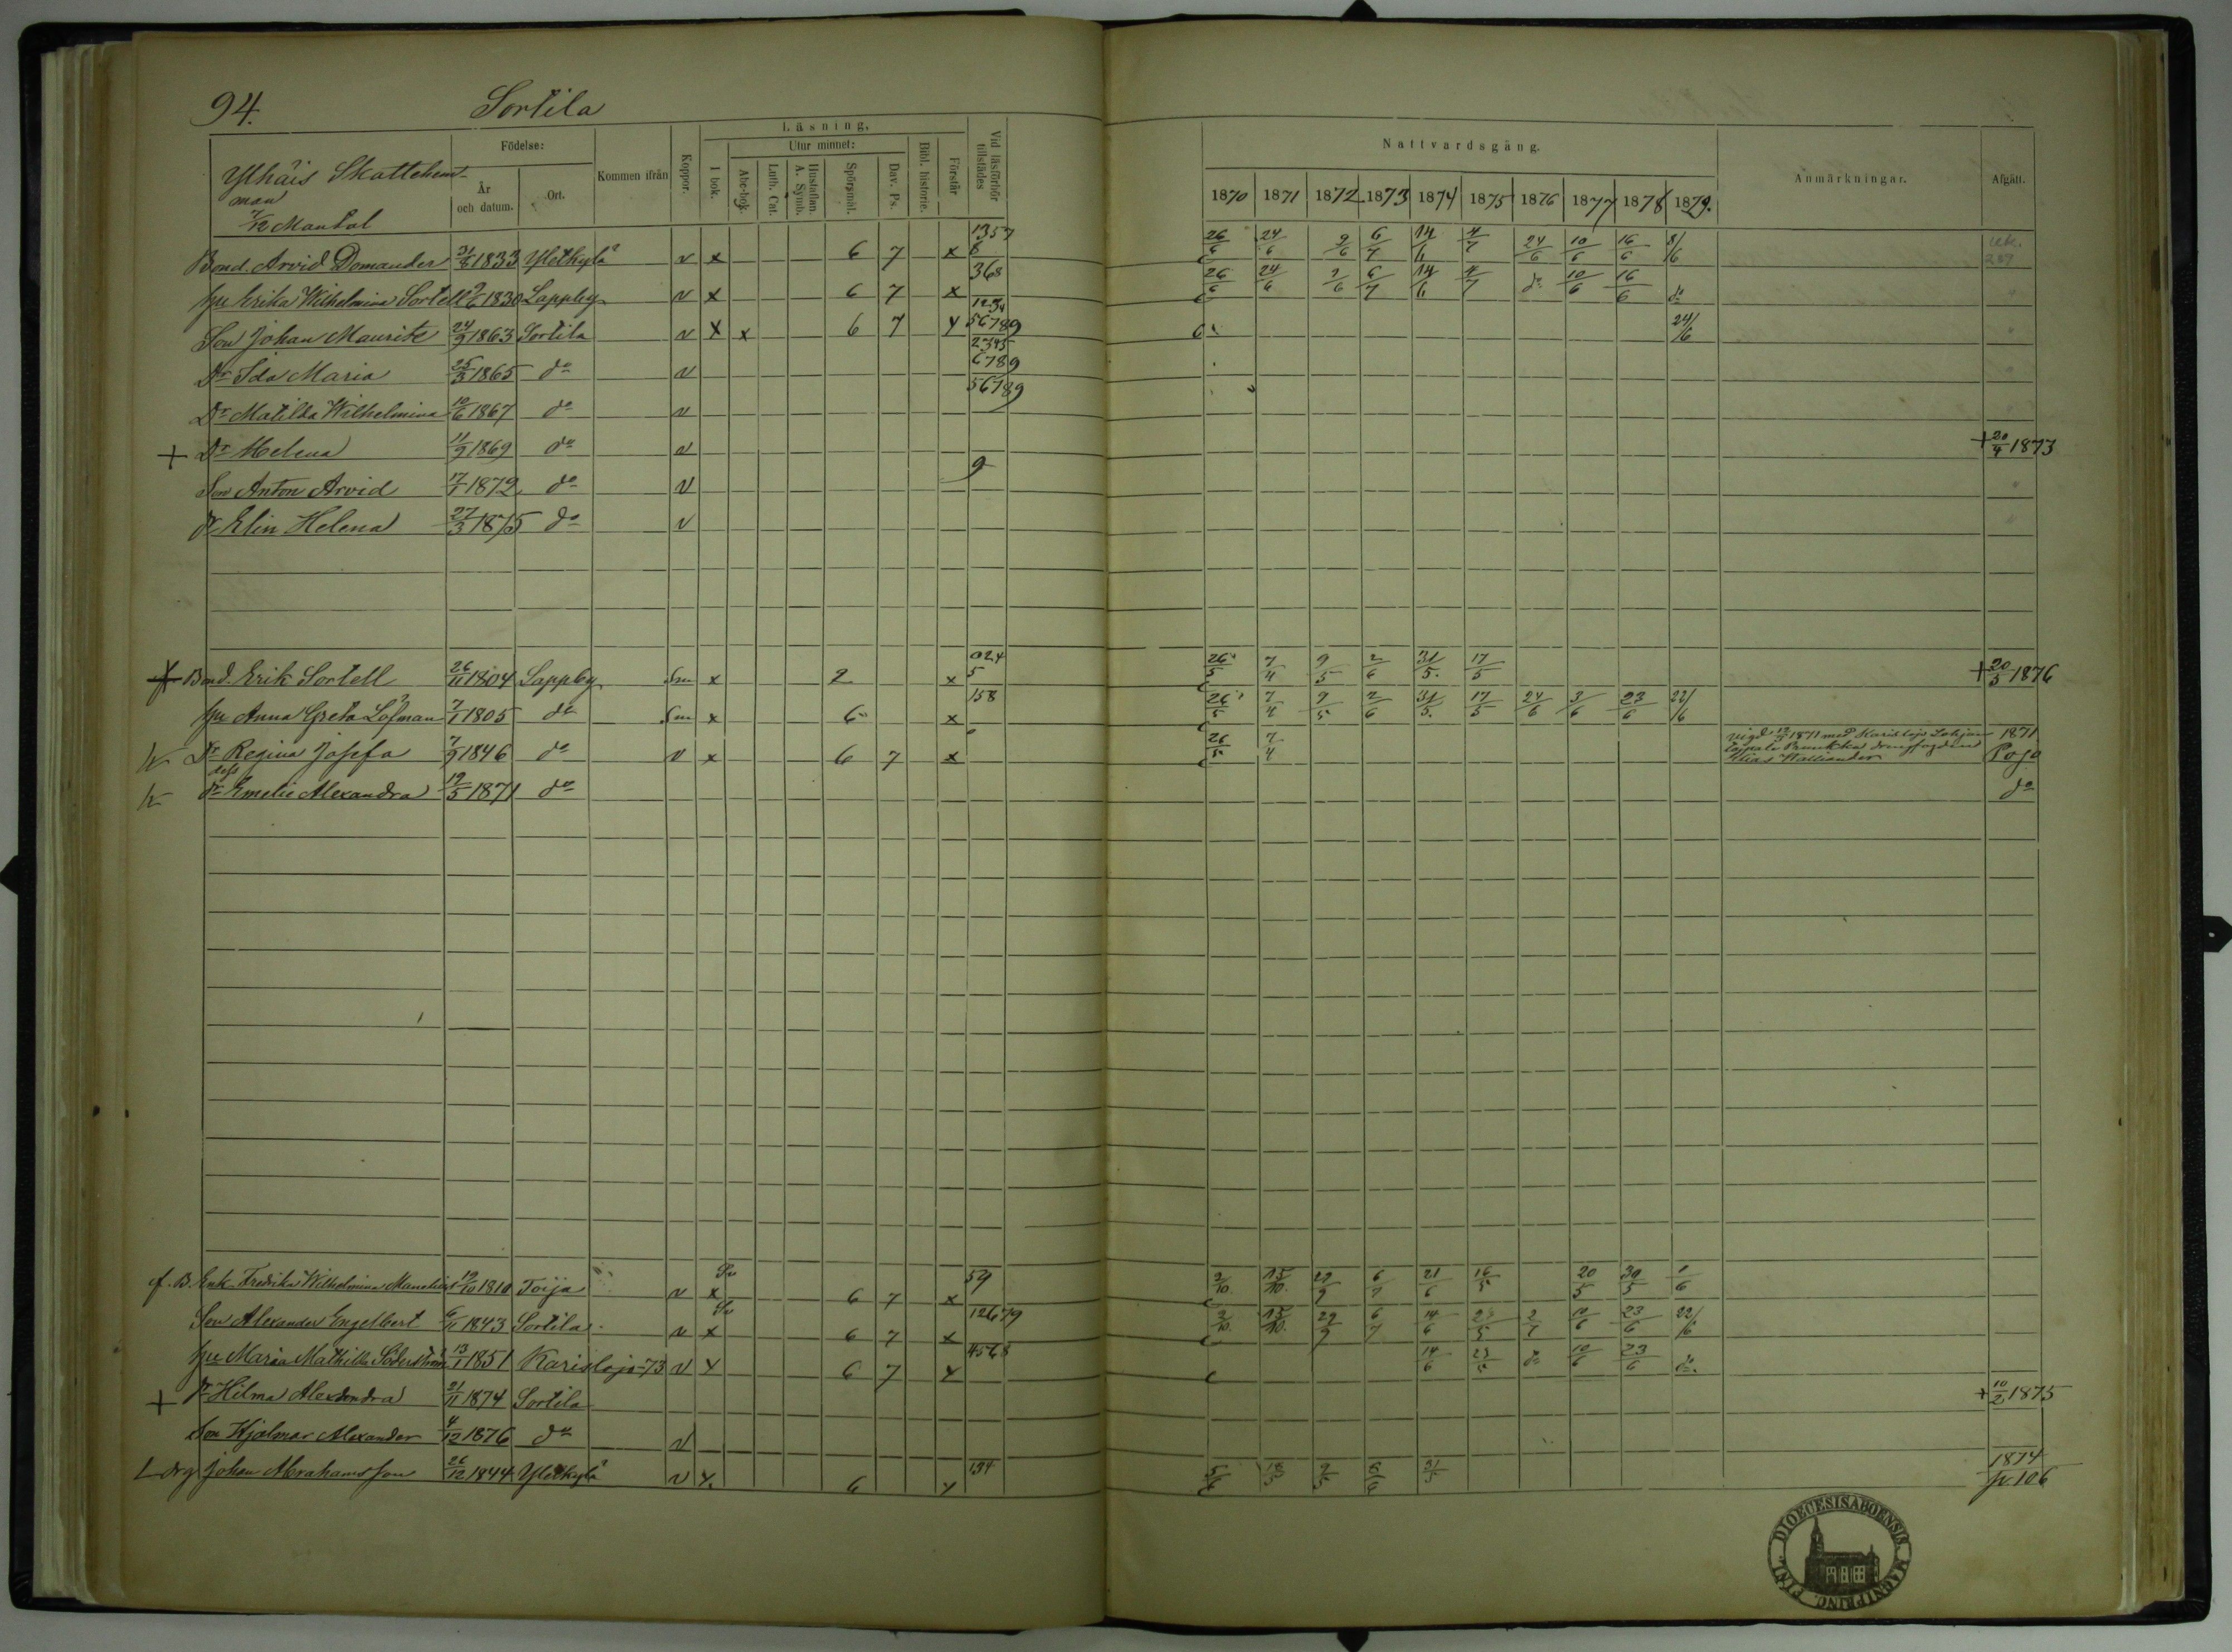 94. Sortila
Ylhäis Skattehem-
man
7/12 Mantal
Födelse:
År
och datum.
Ort.
Kommen ifrån
Koppor.
Läsning.
I bok.
Utur minnet:
Abc-bok.
Luth. Cat.
Hustaflan.
A. Symb.
Spörsmål.
Dav. Ps.
Bibl. historie.
Förstår
Vid läsförhör
tillstädes
Nattvardsgång.
1870 1871 1872 1873 1874 1875 1876 1877 1878 1879.
Anmärkningar.
Afgått.
Bond. Arvid Domander 1833 Yletkylä v x 6 7 x 1357 8 26/6 24/6 9/6 6/7 14/6 4/7 24/6 10/6 16/6 8/6
hu Erika Wilhelmina Sortell 9/6 1830 Lappby v x 6 7 x 368 26/6 24/6 9/6 6/7 14/6 4/7 do 10/6 16/6 do
Son Johan Maurits 24/9 1863 Sortila v x x 6 7 x 1234 56789 24/6
Dr Ida Maria 25/3 1865 do v 2345 6789
Dr Matilda Wilhelmina 10/6 1867 do v 56789
+ Dr Helena 11/9 1869 do v + 20/4 1873
Son Anton Arvid 17/1 1872 do v 9
dr Elin Helena 27/3 1875 do v
+ Bond. Erik Sortell 26/11 1804 Lappby Sm x 2 x 024 5 26/5 7/4 9/5 2/6 31/5 17/5 + 20/5 1876
hu Anna Greta Löfman 7/1 1805 do Sm x 6 x 158 26/5 7/4 9/5 2/6 31/5 17/5 24/6 3/6 23/6 22/6
Dr Regina Josefa 7/9 1846 do v x 6 7 x 0 26/5 7/4 Vigd 1871 med Karislojo Lohjan 1871
drengfogden Pojo
Elias Walliander
dess
dr Emelie Alexandra 19/5 1871 do do
f. B. Enk. Fredrika Wilhelmina 19/10 1810 Toija v Sv x 6 7 x 59 2/10 15/10 29/9 6/7 21/6 16/5 20/5 30/5 1/6
Son Alexander Engelbert 6/11 1843 Sortila v Sv x 6 7 x 12679 2/10 15/10 29/9 6/7 14/6 23/5 2/7 10/6 23/6 22/6
hu Maria Mathilda Söderström 13/1 1851 Karislojo -73 v x 6 7 x 4568 14/6 23/5 do 10/6 23/6 do
+ dr Hilma Alexandra 21/11 1874 Sortila + 10/2 1875
Son Hjalmar Alexander 4/12 1876 do v
drg Johan Abrahamsson 26/12 1844 Yletkylä v x 6 x 134 5/6 18/5 9/5 31/5 1874
p. 106
DIOECESIS ABOENSIS. MAGNI PRINC. FINL.